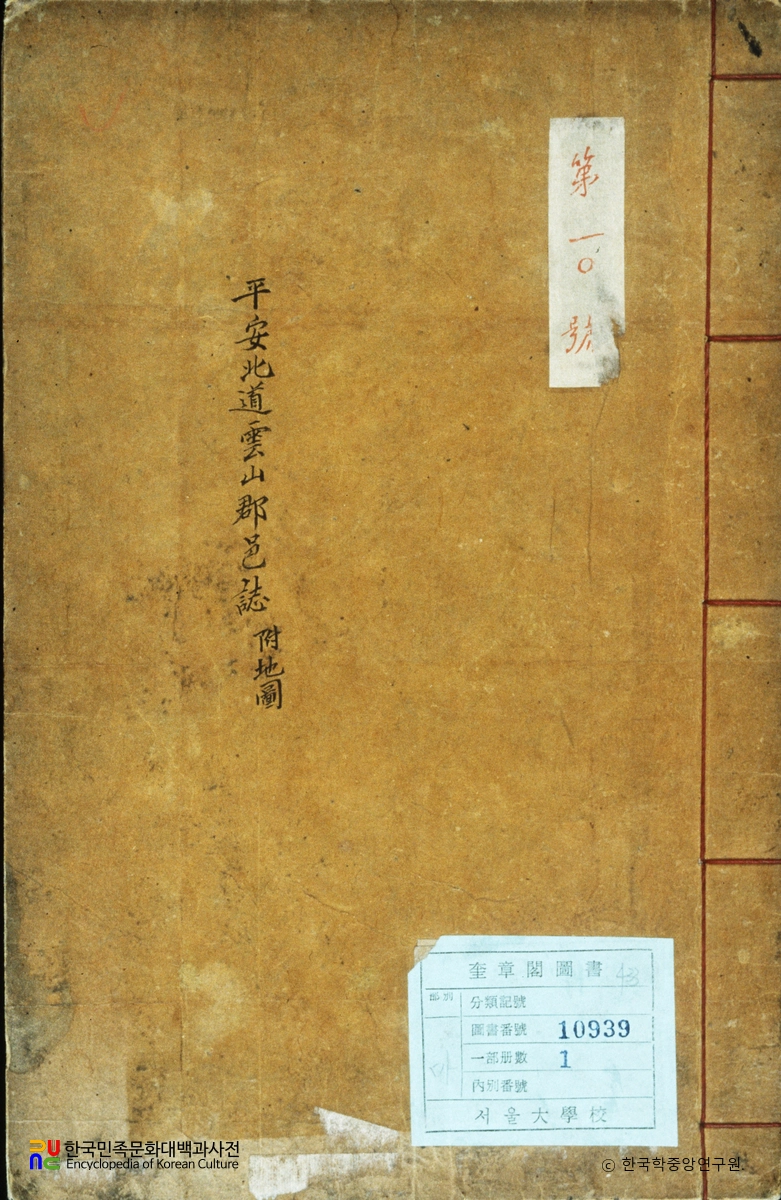 第一〇號
平安北道雲山郡邑誌 附地圖
奎章閣圖書
部別
分類記號
圖書番號 10939
一部册數 1
內別番號
서울大學校
한국민족문화대백과사전
Encyclopedia of Korean Culture
ⓒ 한국학중앙연구원